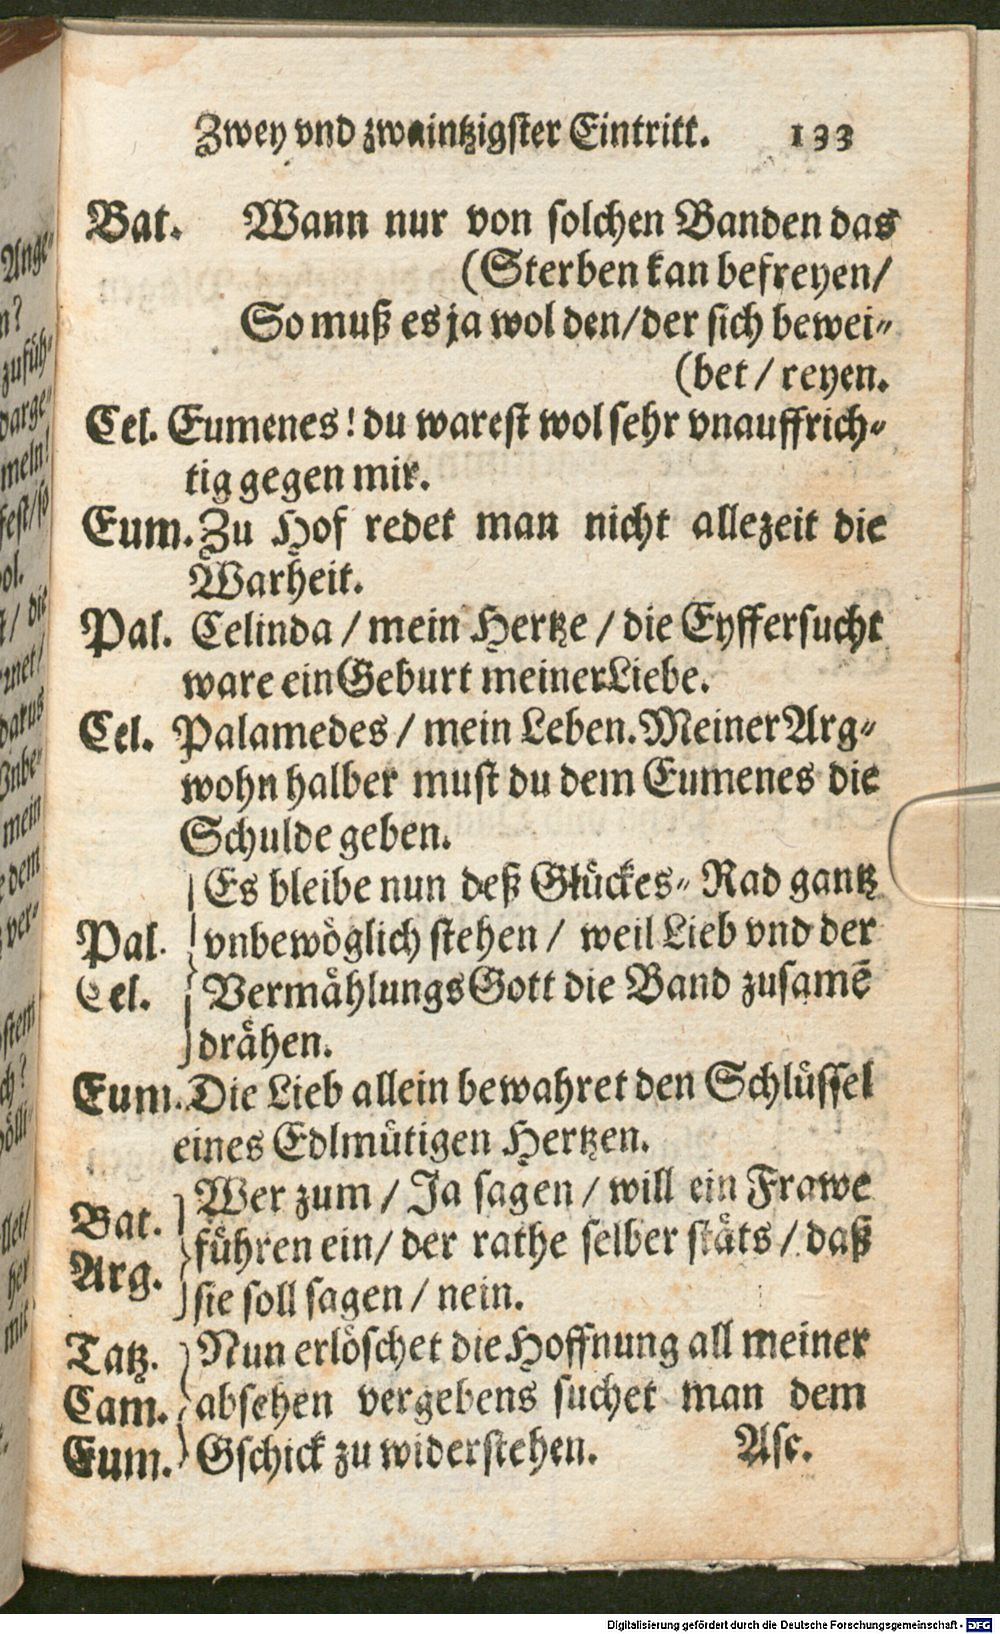 Zwey vnd zwaintzigster Eintritt. 133
Bat. Wann nur von solchen Banden das
(Sterben kan befreyen/
So muß es ja wol den/der sich bewei-
(bet / reyen.
Cel. Eumenes! du warest wol sehr vnauffrich-
tig gegen mir.
Eum. Zu Hof redet man nicht allezeit die
Warheit.
Pal. Celinda / mein Hertze / die Eyffersucht
ware ein Geburt meiner Liebe.
Cel. Palamedes / mein Leben. Meiner Arg-
wohn halber must du dem Eumenes die
Schulde geben.
Es bleibe nun deß Glückes- Rad gantz
Pal. vnbewöglich stehen / weil Lieb vnd der
Cel. Vermählungs Gott die Band zusamē
drähen.
Eum. Die Lieb allein bewahret den Schlüssel
eines Edlmütigen Hertzen.
Wer zum / Ja sagen / will ein Frawe
Bat. führen ein/ der rathe selber stäts / daß
Arg. sie soll sagen / nein.
Tatz. Nun erlöschet die Hoffnung all meiner
Cam. absehen vergebens suchet man dem
Eum. Gschick zu widerstehen. Asc.
Ange-
n?
zufüh-
darge-
meln!
fest/so
ol.
/ die
met/
darus
Vnbe-
mein
dem
ver-
stem
ch?
völli-
llet/
her
mit
Digitalisierung gefördert durch die Deutsche Forschungsgemeinschaft - DFG